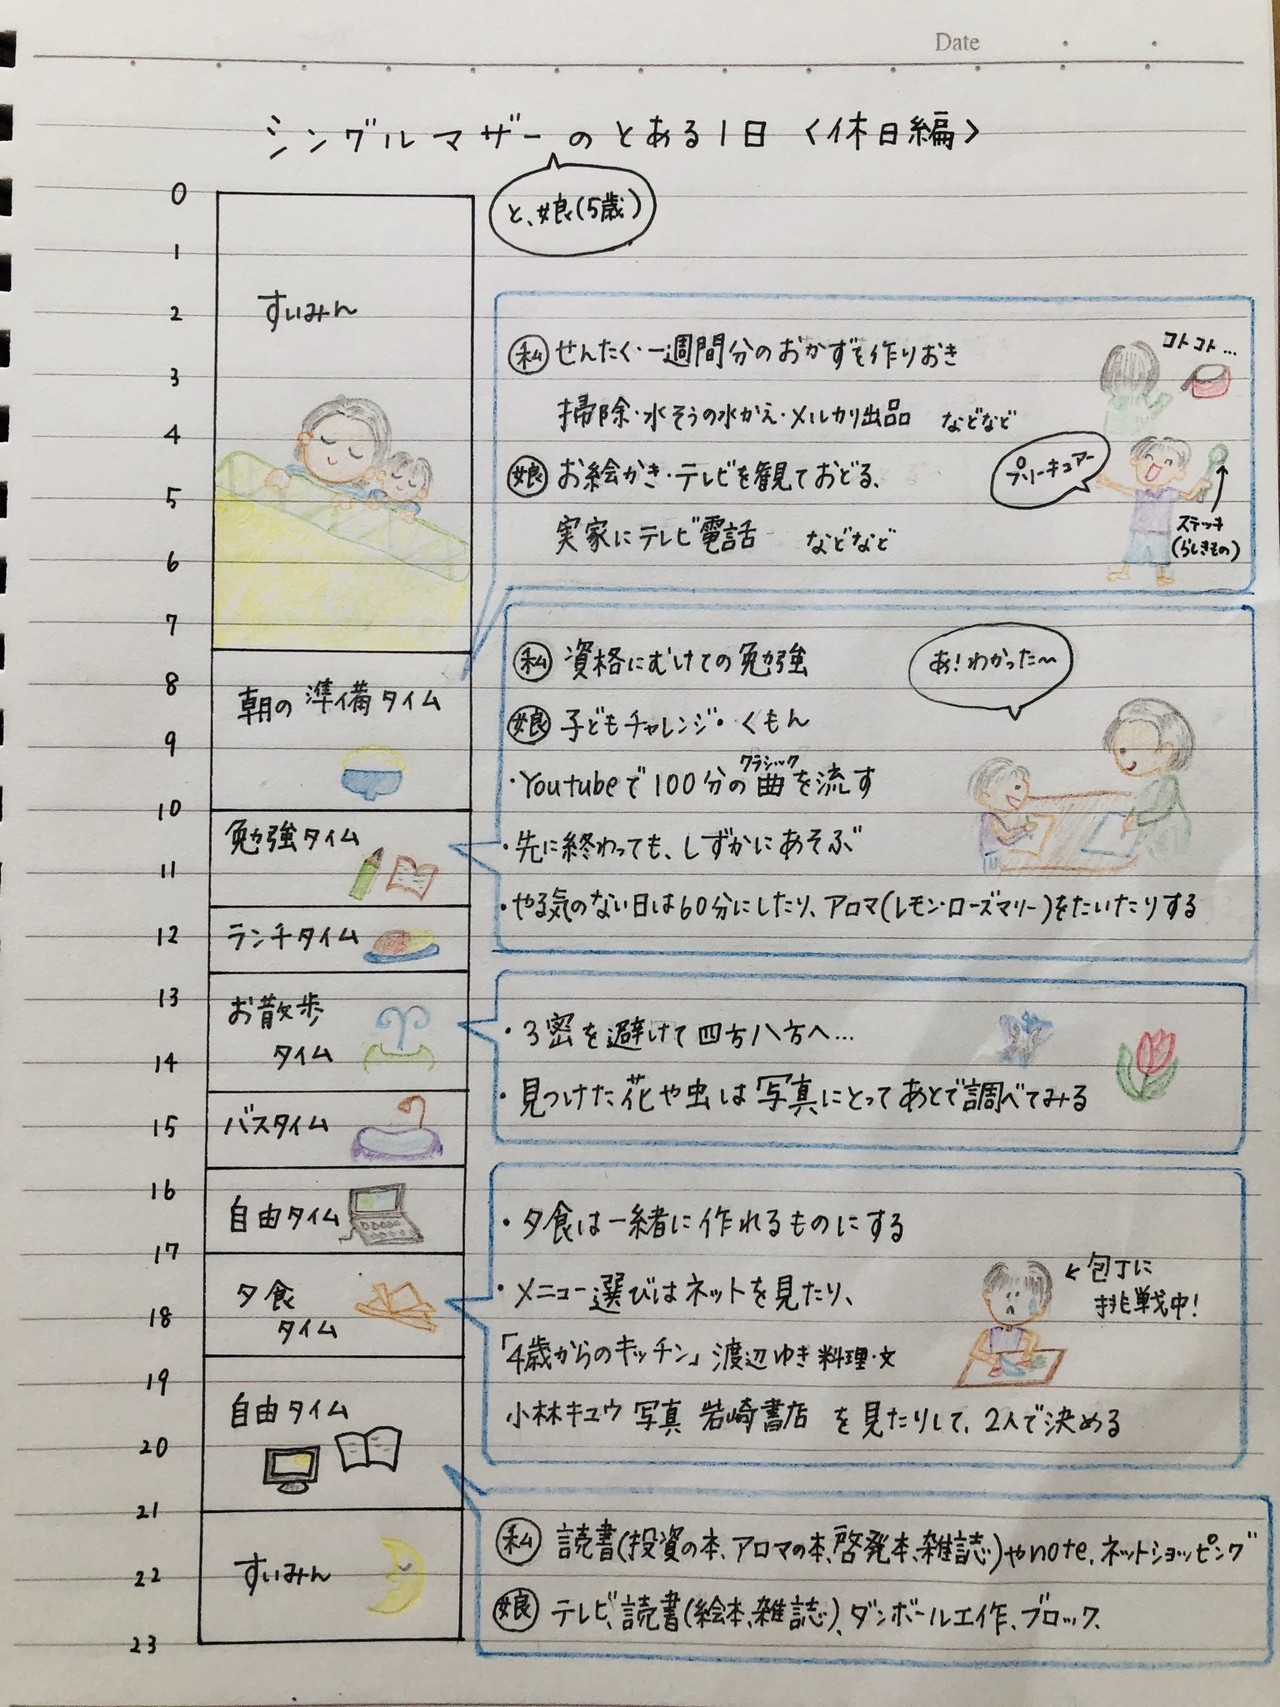 Date
シングルマザーのとある1日〈休日編〉
と、娘(5歳)
0
1
2
3
4
5
6
7
8
9
10
11
12
13
14
15
16
17
18
19
20
21
22
23
すいみん
朝の準備タイム
勉強タイム
ランチタイム
お散歩
タイム
バスタイム
自由タイム
夕食
タイム
自由タイム
すいみん
私 せんたく・一週間分のおかずを作りおき
掃除・水そうの水かえ・メルカリ出品 などなど
娘 お絵かき・テレビを観ておどる、
実家にテレビ電話 などなど
コトコト…
プリーキュアー
ステッキ
(らしきもの)
私 資格にむけての勉強
娘 子どもチャレンジ・くもん
・Youtubeで100分の曲を流す
クラシック
・先に終わっても、しずかにあそぶ
・やる気のない日は60分にしたり、アロマ(レモン・ローズマリー)をたいたりする
あ!わかった〜
・3密を避けて四方八方へ…
・見つけた花や虫は写真にとってあとで調べてみる
・夕食は一緒に作れるものにする
・メニュー選びはネットを見たり、
「4歳からのキッチン」渡辺ゆき 料理・文
小林キユウ 写真 岩崎書店 を見たりして、2人で決める
←包丁に
挑戦中!
私 読書(投資の本、アロマの本、啓発本、雑誌)やnote、ネットショッピング
娘 テレビ、読書(絵本、雑誌)、ダンボール工作、ブロック、